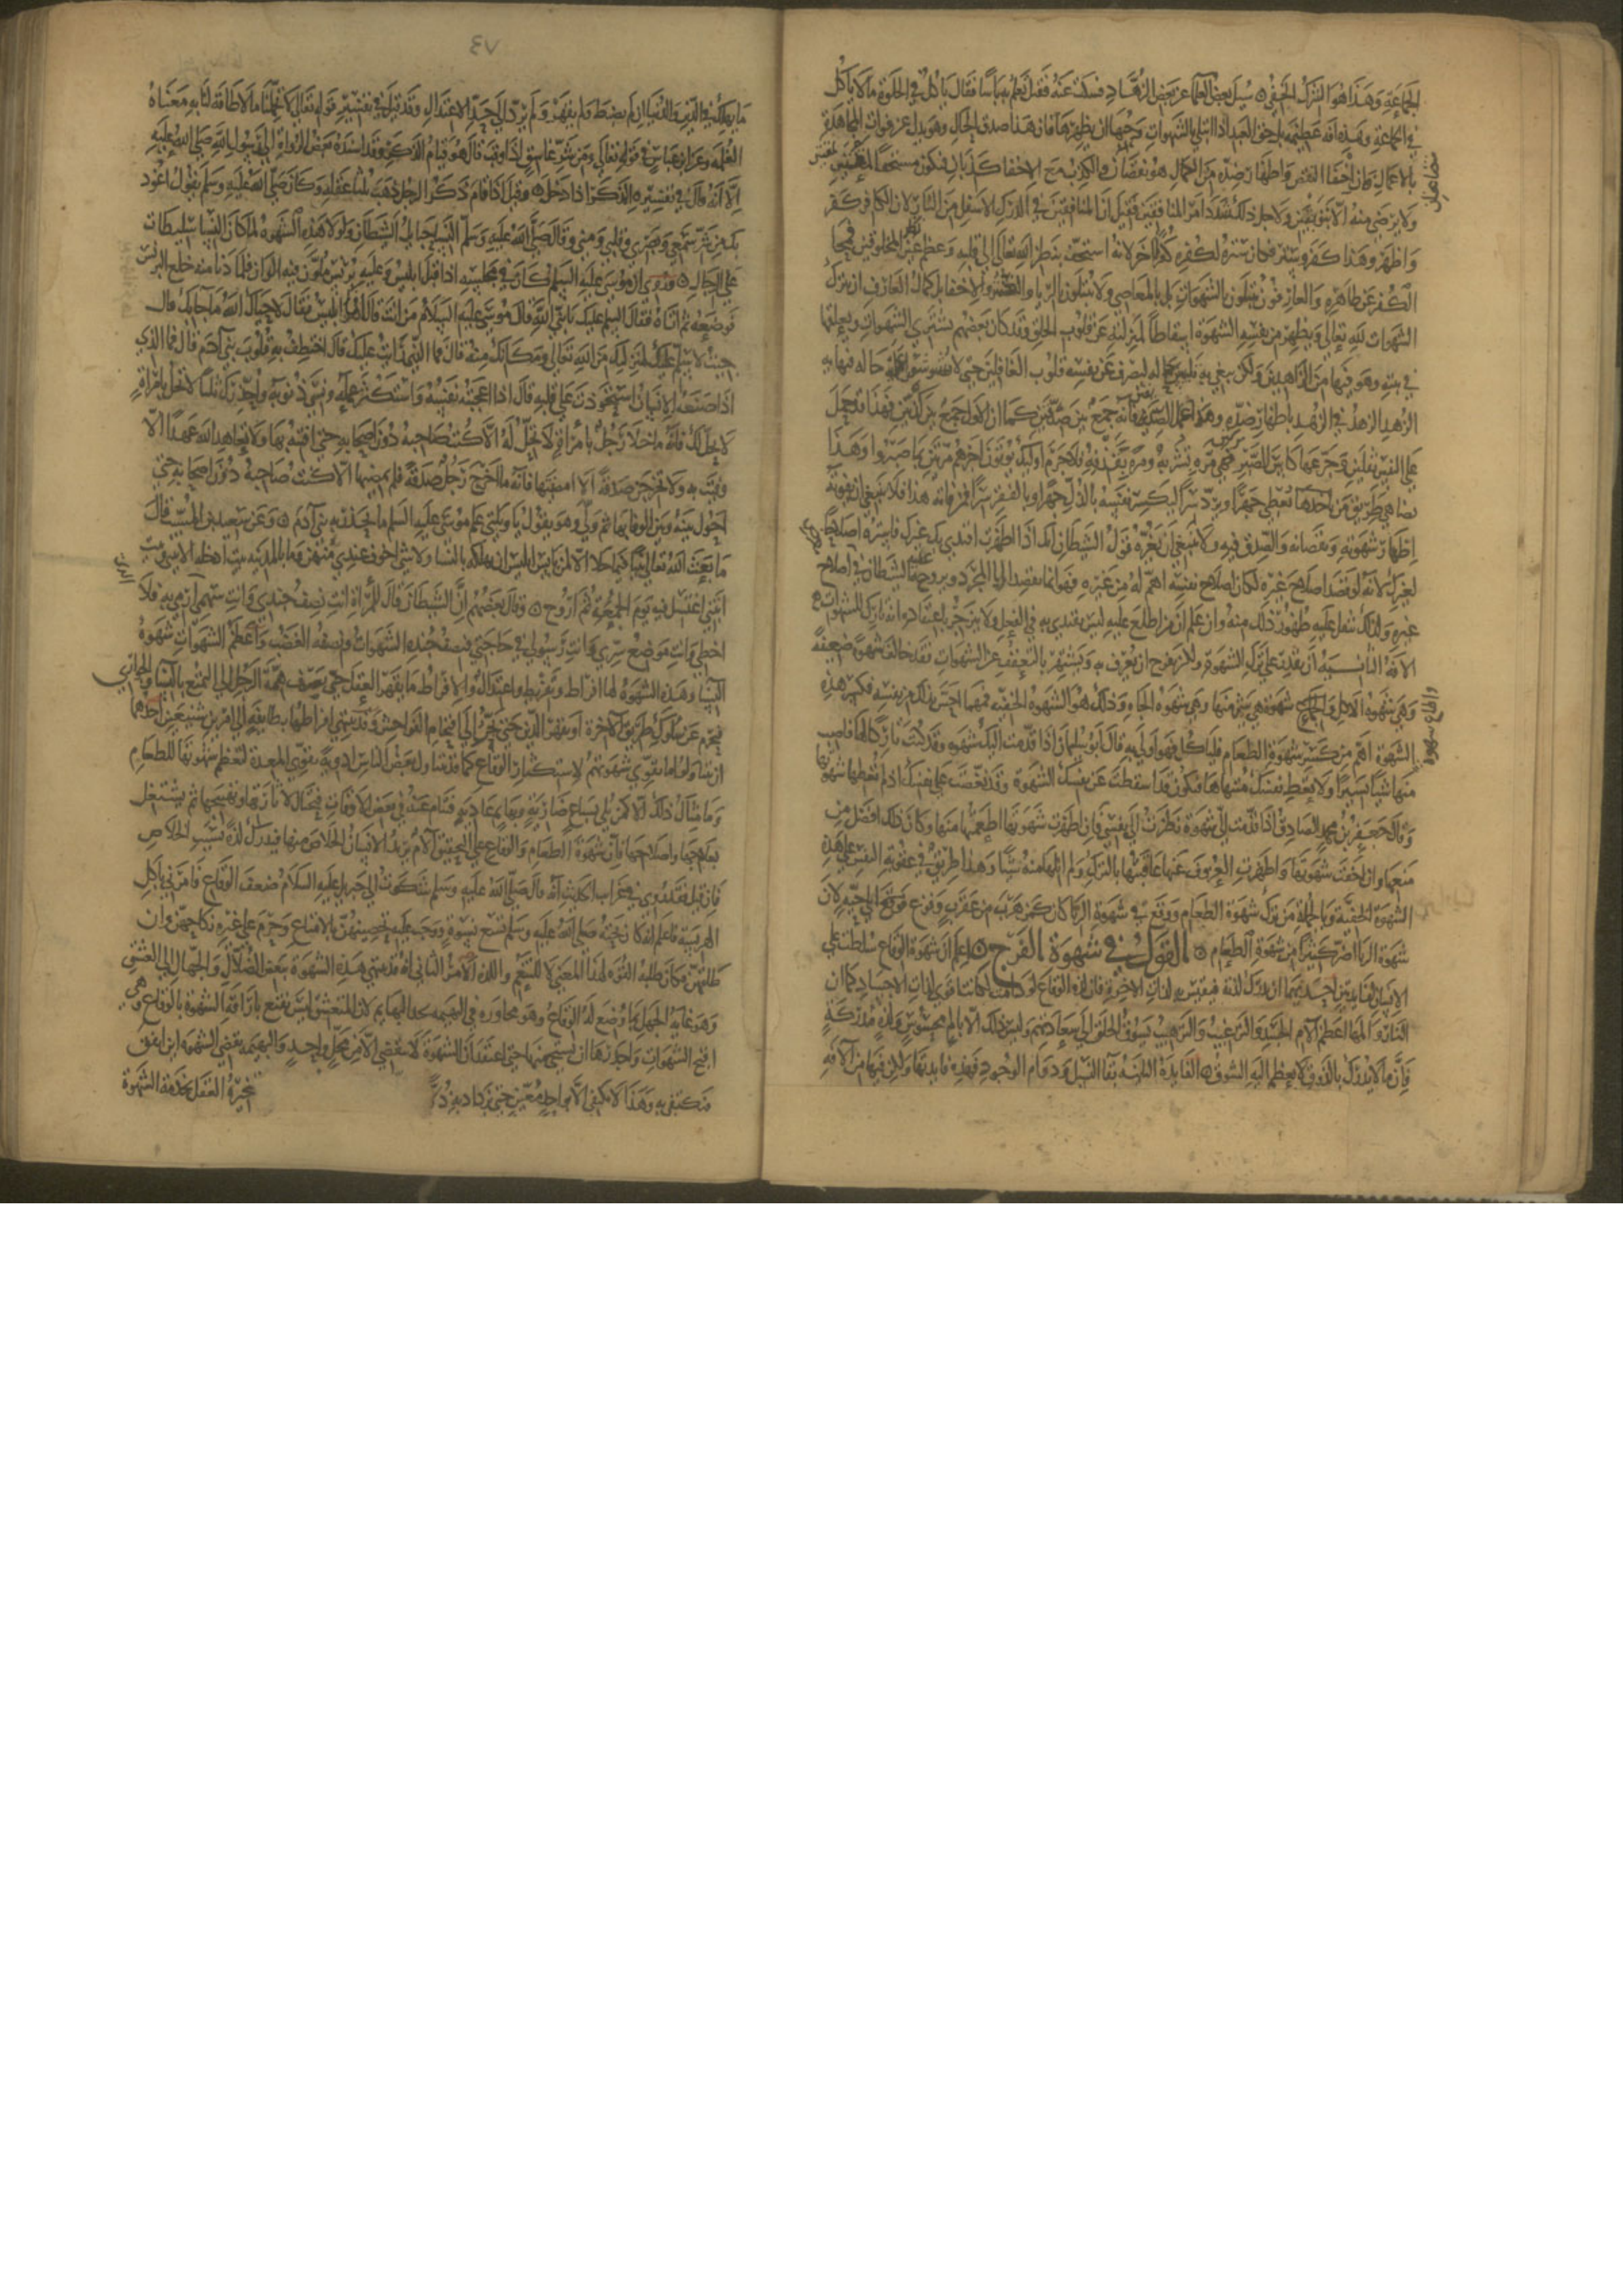 الجماعة وهذا هو الشرك الخفي سئل بعض العلماء عن بعض الزهاد فسكت عنه فقيل تعلم به باسا فقال ياكل في الخلوة ما لا ياكل
في الجماعة وهذه افه عظيمه بل حق العبد اذا ابتلي بالشهوات وحبها ان يظهرها فان هذا صدق الحال وهو بدل عن فوات المجاهدة
بالاعمال فان اخفا النقص واظهار ضده من الكمال هو نقصان والكذب مع الاخفا كذبان فيكون مستحقا
ولا يرضى منه الا بتوبتين ولاجل ذلك شدد امر المنافقين فقيل ان المنافقين في الدرك الاسفل من النار لان الكافر كفر
واظهر وهذا كفر وستر فكان ستره لكفره كفرا اخر لانه استخف بنظر الله تعالى الى قلبه وعظم نظر المخلوقين فمحا
الكفر عن ظاهره والعارفون يبتلون بالشهوات بل بالمعاصي ولا يبتلون بالريا والغش والاخفا بل كمال العارف ان يترك
الشهوات لله تعالى ويظهر من نفسه الشهوة اسقاطا لمنزلته عن قلوب الخلق وقد كان بعضهم يشتري الشهوات ويعلقها
في بيته وهو فيها من الزاهدين ولكن يبغي به تلبيس حاله ليصرف عن نفسه قلوب الغافلين حتى لا يشوشوا عليه حاله فنهايه
الزهد الزهد في الزهد باظهار ضده وهذا عمل الصديقين فانه جمع بين صدقين كما ان الاول جمع بين كذبين فهذا قد حمل
على النفس ثقلين وجرعها كاس الصبر مرتين مره بشربه ومره برميه فلا جرم اولئك يؤتون اجرهم مرتين بما صبروا وهذا
يضاهي طريق من يعطى جهرا فياخذ ويرد سرا ليكسر نفسه بالذل جهرا وبالفقر سرا فمن فاته هذا فلا ينبغي ان يفوته
اظهار شهوته ونقصانه والصدق فيه ولا ينبغي ان يغره قول الشيطان انك اذا اظهرت اقتدى بك غيرك فاستره اصلاحا
لغيرك لانه لو قصد اصلاح غيره لكان اصلاح نفسه اهم له من غيره فهو انما يقصد الريا المجرد ويروجه عليه الشيطان في اصلاح
غيره ولذلك ثقل عليه ظهور ذلك منه وان علم ان من اطلع عليه ليس يقتدي به في الفعل ولا ينزجر باعتقاده انه تارك للشهوات
الافه الثانيه ان يقدر على ترك الشهوة ولكن يفرح ان يعرف به ويشتهر بالتعفف عن الشهوات فقد خالف شهوة ضعيفة
وهي شهوه الاكل واطاع شهوة هي شر منها وهي شهوه الجاه وذلك هو الشهوه الخفيه فمهما احس بذلك من نفسه فكسر هذه
الشهوة اهم من كسر شهوة الطعام فلياكل فهو اولى به قال ابو سليمان اذا قدمت اليك شهوه وقد كنت تاركا لها فاصب
منها شيا يسيرا ولا تعط نفسك مناها فتكون قد اسقطت عن نفسك الشهوة وقد نغصت على نفسك اذ لم تعطها شهوتها
وقال جعفر بن محمد الصادق اذا قدمت الي شهوة نظرت الى نفسي فان اظهرت شهوتها اطعمتها منها وكان ذلك افضل من
منعها وان اخفت شهوتها واظهرت العزوف عنها عاقبتها بالترك ولم انلها منه شيا وهذا طريق في عقوبة النفس على هذه
الشهوة الخفية وبالجملة من ترك شهوة الطعام ووقع في شهوة الريا كان كمن هرب من عقرب وفزع فوقع الى حيه لان
شهوة الريا اضر كثيرا من شهوة الطعام القول في شهوة الفرج اعلم ان شهوة الوقاع سلطت على
الانسان لفايدتين احدهما ان يدرك لذته فيقيس به لذات الاخره فان لذة الوقاع لو دامت لكانت اقوى لذات الاجساد كما ان
النار والمها اعظم الام الجسد والترغيب والترهيب يسوق الخلق الى سعادتهم وليس ذلك الا بالم محسوس ولذة مدركة
فان ما لا يدرك بالذوق لا يعظم اليه الشوق الفايدة الثانيه بقا النسل ودوام الوجود فهذه فايدتها ولكن فيها من الافه
٧٤
ما يهلك في الدين والدنيا ان لم يضبط ولم يقهر ولم يرد الى حد الاعتدال وقد قيل في تفسير قوله تعالى لا تحملنا ما لا طاقة لنا به معناه
الغلمه وعن ابن عباس في قوله تعالى ومن شر غاسق اذا وقب قال هو قيام الذكر وقد اسنده بعض الرواة الى رسول الله صلى الله عليه
الا انه قال في تفسيره الذكر اذا دخل وقيل اذا قام ذكر الرجل ذهب ثلثا عقله وكان صلى الله عليه وسلم يقول اعوذ
بك من شر سمعي وبصري وقلبي ومنيي وقال صلى الله عليه وسلم النسا حبايل الشيطان ولولا هذه الشهوه لما كان للنسا سلطان
على الرجال وروي ان موسى عليه السلم كان في مجلسه اذ اقبل ابليس وعليه برنس متلون فيه الوان فلما دنا منه خلع البرنس
فوضعه ثم اتاه فقال السلم عليك يا نبي الله قال موسى عليه السلام من انت قال انا ابليس فقال لا حياك الله ما جا بك قال
جيت لاسلم عليك لمنزلتك من الله تعالى ومكانك منه قال فما الذي رايت عليك قال اختطف به قلوب بني ادم قال فما الذي
اذا صنعه الانسان استحوذت على قلبه قال اذا اعجبته نفسه واستكثر عمله ونسي ذنوبه واحذرك ثلثا لا تخل بامراة
لا تحل لك فانه ما خلا رجل بامراة لا تحل له الا كنت صاحبه دون اصحابي حتى افتنه بها ولا تعاهد الله عهدا الا
وفيت به ولا تخرجن صدقة الا امضيتها فانه ما اخرج رجل صدقة فلم يمضها الا كنت صاحبه دون اصحابي حتى
احول بينه وبين الوفا بها ثم ولى وهو يقول يا ويلتى علم موسى عليه السلم ما يحذر به بني ادم وعن سعيد بن المسيب قال
ما بعث الله تعالى نبيا فيما خلا الا لم ييس ابليس ان يهلكه بالنسا ولا شي اخوف عندي منهن وما بالمدينة بيت ادخله الا بيتي وبيت
ابنتي اغتسل فيه يوم الجمعة ثم اروح وقال بعضهم ان الشيطان قال للمراة انت نصف جندي وانت سهمي ارمي به فلا
اخطي وانت موضع سري وانت رسولي في حاجتي فنصف جنده الشهوات ونصفه الغضب واعظم الشهوات شهوة
النسا وهذه الشهوة لها افراط وتفريط واعتدال والافراط ما يقهر العقل حتى يصرف همة الرجل الى التمتع بالنسا والجواري
فيحرم عن سلوك طريق الاخرة او يقهر الدين حتى يجر الى اقتحام الفواحش وقد ينتهي افراطها بطايفة الى امرين شنيعين احدهما
ان يتناولوا ما يقوي شهوتهم لاستكثار الوقاع كما قد يتناول بعض الناس ادوية تقوي المعدة لتعظم شهوتها للطعام
وما مثال ذلك الا كمن بلي بسباع ضارية وبهايم عادية فتنام عنه في بعض الاوقات فيحتال لاثارتها وتهييجها ثم يشتغل
بعلاجها واصلاحها فان شهوة الطعام والوقاع على التحقيق الام يريد الانسان الخلاص منها فيدرك لذة بسبب الخلاص
فان قيل فقد روي في غراب الحديث انه قال صلى الله عليه وسلم شكوت الى جبريل عليه السلام ضعف الوقاع فامرني باكل
الهريسة فاعلم انه كان تحته صلى الله عليه وسلم تسع نسوة ووجب عليه تحصينهن بالامتاع وحرم على غيره نكاحهن وان
طلقهن فكان طلبه القوه لهذا المعنى لا للتنعم والامر الثاني انه قد تنتهي هذه الشهوة ببعض الضلال والجهال الى العشق
وهو غاية الجهل بما وضع له الوقاع وهو مجاوره في البهيميه لحد البهايم لان المتعشق ليس يقنع باراقة الشهوة بالوقاع وهي
اقبح الشهوات واجدرها ان يستحى منها حتى اعتقد ان الشهوة لا تنقضي الا من محل واحد والبهيمه تقضي الشهوه اين اتفق
فتكتفي به وهذا لا يكتفي الا بواحد معين حتى يزداد به